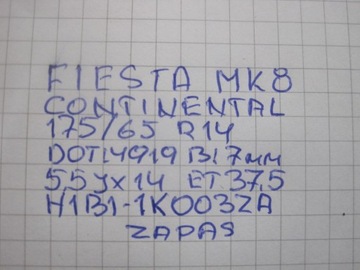 FIESTA MK8
CONTINENTAL
175/65 R14
DOT:4919 B:7mm
5,5Jx14 ET37,5
H1B1-1K003ZA
ZAPAS